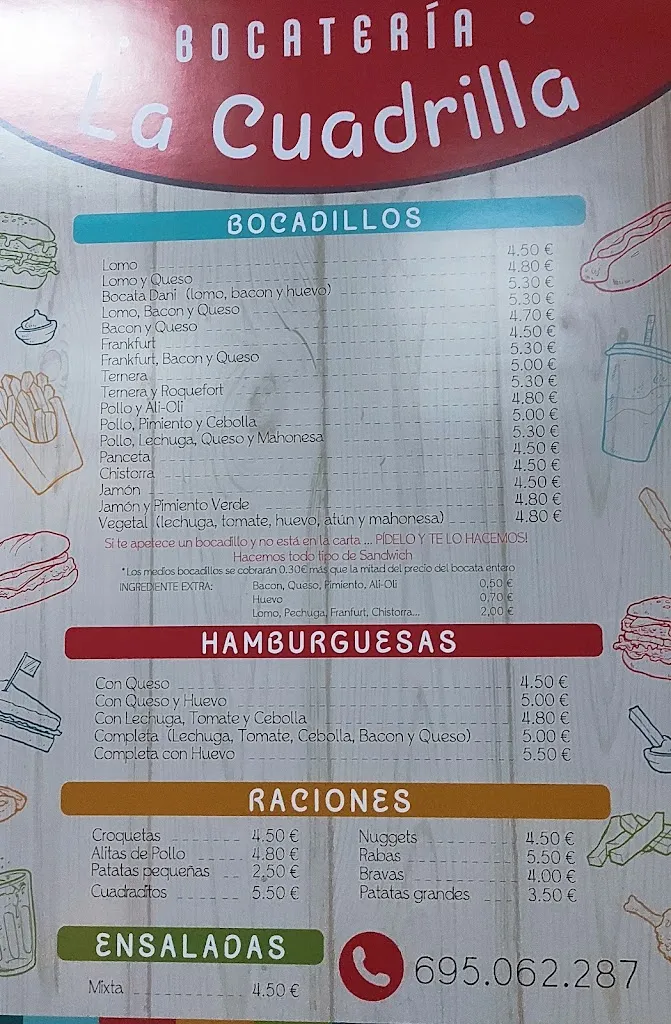 BOCATERÍA
La Cuadrilla
BOCADILLOS
Lomo 4.50 €
Lomo y Queso 4.80 €
Bocata Dani (lomo, bacon y huevo) 5.30 €
Lomo, Bacon y Queso 5.30 €
Bacon y Queso 4.70 €
Frankfurt 4.50 €
Frankfurt, Bacon y Queso 5.30 €
Ternera 5.00 €
Ternera y Roquefort 5.30 €
Pollo y Ali-Oli 4.80 €
Pollo, Pimiento y Cebolla 5.00 €
Pollo, Lechuga, Queso y Mahonesa 5.30 €
Panceta 4.50 €
Chistorra 4.50 €
Jamón 4.50 €
Jamón y Pimiento Verde 4.80 €
Vegetal (lechuga, tomate, huevo, atún y mahonesa) 4.80 €
Si te apetece un bocadillo y no está en la carta ... PÍDELO Y TE LO HACEMOS!
Hacemos todo tipo de Sandwich
*Los medios bocadillos se cobrarán 0.30€ más que la mitad del precio del bocata entero
INGREDIENTE EXTRA: Bacon, Queso, Pimiento, Ali-Oli 0,50 €
Huevo 0,70 €
Lomo, Pechuga, Franfurt, Chistorra... 2,00 €
HAMBURGUESAS
Con Queso 4.50 €
Con Queso y Huevo 5.00 €
Con Lechuga, Tomate y Cebolla 4.80 €
Completa (Lechuga, Tomate, Cebolla, Bacon y Queso) 5.00 €
Completa con Huevo 5.50 €
RACIONES
Croquetas 4.50 € Nuggets 4.50 €
Alitas de Pollo 4.80 € Rabas 5.50 €
Patatas pequeñas 2,50 € Bravas 4.00 €
Cuadraditos 5.50 € Patatas grandes 3.50 €
ENSALADAS
Mixta 4.50 €
695.062.287